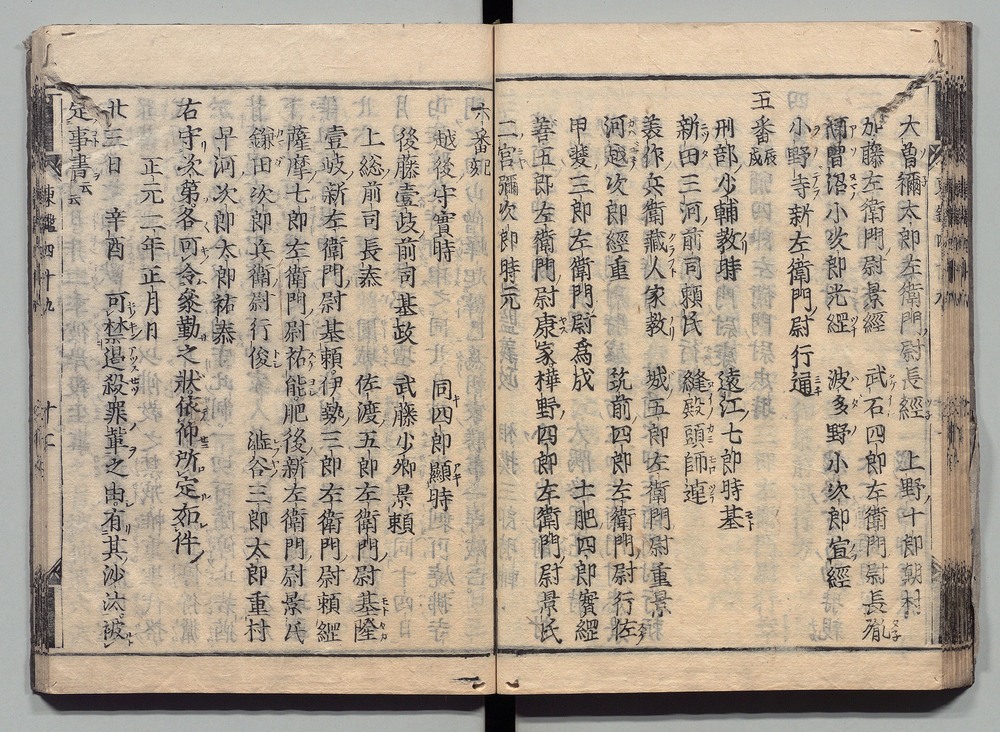 大曽禰太郎左衛門尉長經　上野十郎朝村
加藤左衛門尉景經　武石四郎左衛門尉長胤
阿曽沼小次郎光經　波多野小次郎宣經
小野寺新左衛門尉行通
五番辰戌
刑部少輔教時　遠江七郎時基
新田三河前司頼氏　縫殿頭師連
美作兵衛藏人家教　城五郎左衛門尉重景
河越次郎經重　筑前四郎左衛門尉行佐
甲斐三郎左衛門尉爲成　土肥四郎實經
善五郎左衛門尉康家　樺野四郎左衛門尉景氏
二宮彌次郎時元
六番
越後守實時　同四郎顯時
後藤壹岐前司基政　武藤少卿景頼
上総前司長泰　佐渡五郎左衛門尉基隆
壹岐新左衛門尉基頼　伊勢三郎左衛門尉頼經
薩摩七郎左衛門尉祐能　肥後新左衛門尉景氏
鎌田次郎兵衛尉行俊　澁谷三郎太郎重村
早河次郎太郎祐泰
右守次第各可令參勤之狀依仰所定如件
正元二年正月日
廿三日　辛酉　可禁遏殺罪輩之由有其沙汰被
定事書云云
東鑑四十九
十二